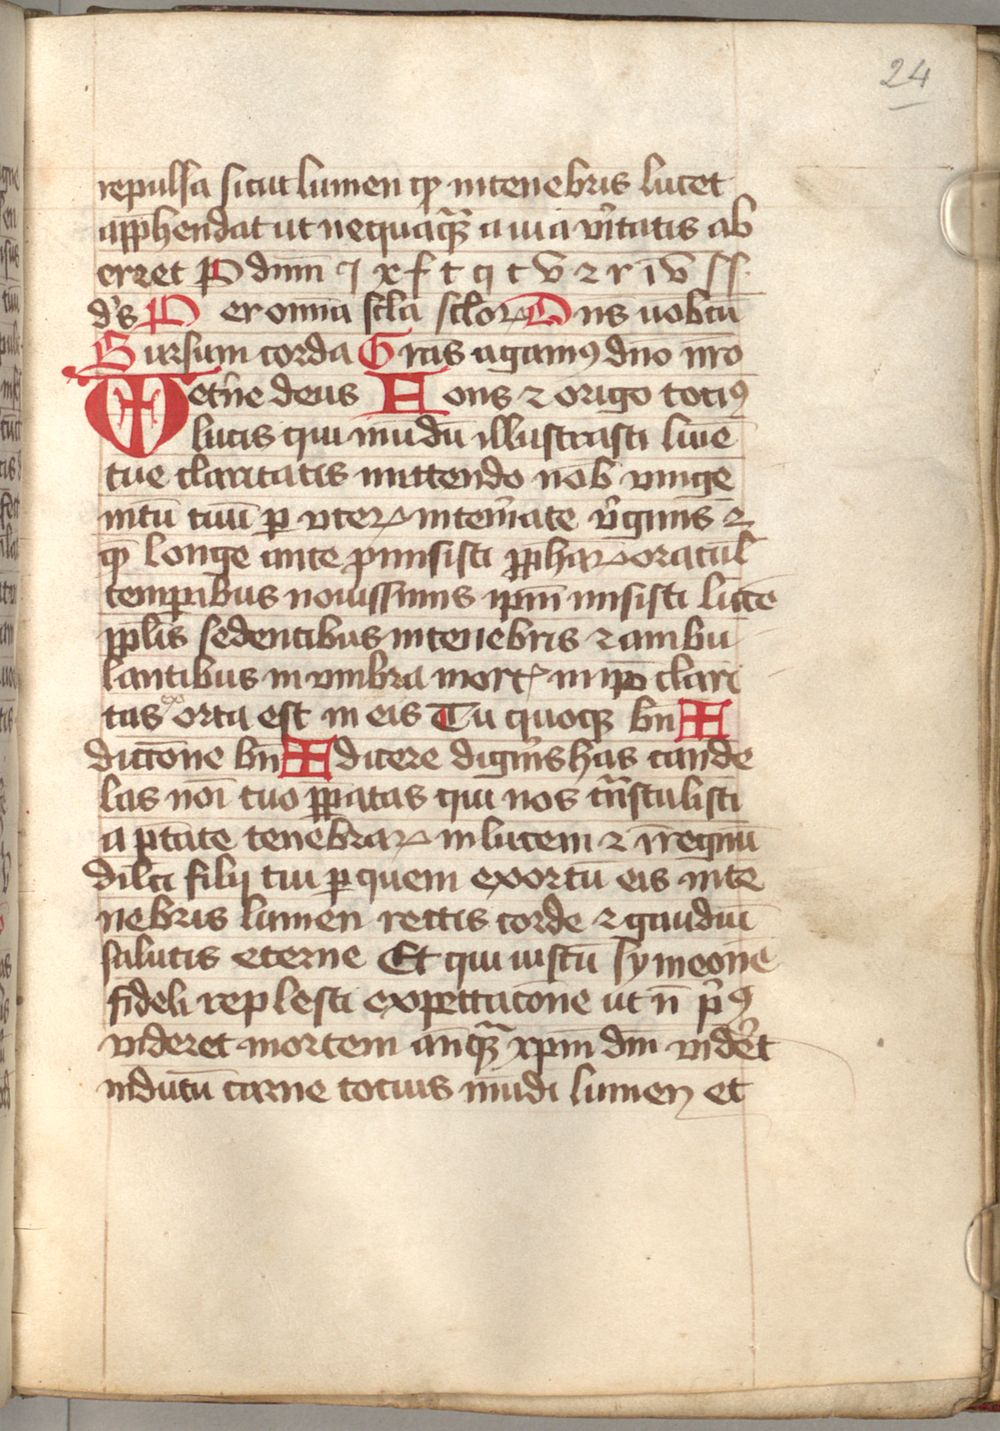 24
repulsa sicut lumen qd̄ intenebris lucet
app̄hendat ut nequaq̄ȝ a uia ūitatis ab
erret P dnm̄ i x f t q t v̄ z r i v̄ s s.
d's P er omnia scl̄a sclor̄ D ns uobcū
Sursum corda Gras agamꝰ dn̄o nr̄o
V et'ne deus F ons ⁊ origo totiꝰ
lucis qui mūdū illustrasti lum̄e
tue claritatis mittendo nob̄ vnige
nitū tuū ꝑ vteꝝ intem̄ate v̄ginis ⁊
q̄ longe ante ꝓmisisti ꝓph̄aꝝ oracul̄
temꝑibus nouissimis ip̄m misisti lucē
ppl̄is sedentibus intenebris ⁊ ambu
lantibus in vmbra mort̄ ut in ip̄o clari
tas orta est in eis Tu quoqȝ bn̄ ✠
dictōne bn̄ ✠ dicere dign̄is has cande
las noī tuo p̄ꝑatas qui nos tn̄stulisti
a ptāte tenebraꝝ in lucem ⁊ ī regnū
dilc̄i filij tui ꝑ quem exortū eis inte
nebris lumen rectis corde ⁊ gaudiū
salutis eterne Et qui iustū symeonē
fideli replesti expectacōne ut n̄ p̄ꝰ
videret mortem anq̄ȝ xp̄m dm̄ vid'et
indutū carne tocius mūdi lumen et